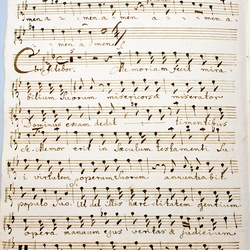 mena
mena
mena
a
men a
Confitebor. Memoriam fecit mira
bilium Suorum misericors et miserator
Dominus escam dedit timentibus
Se. Memor erit in Sæculum testamenti Su
i virtutem operum Suorum annuntiabit
populo Suo. Ut det illis hæreditatem gentium
opera manuum ejus veritas et judicium